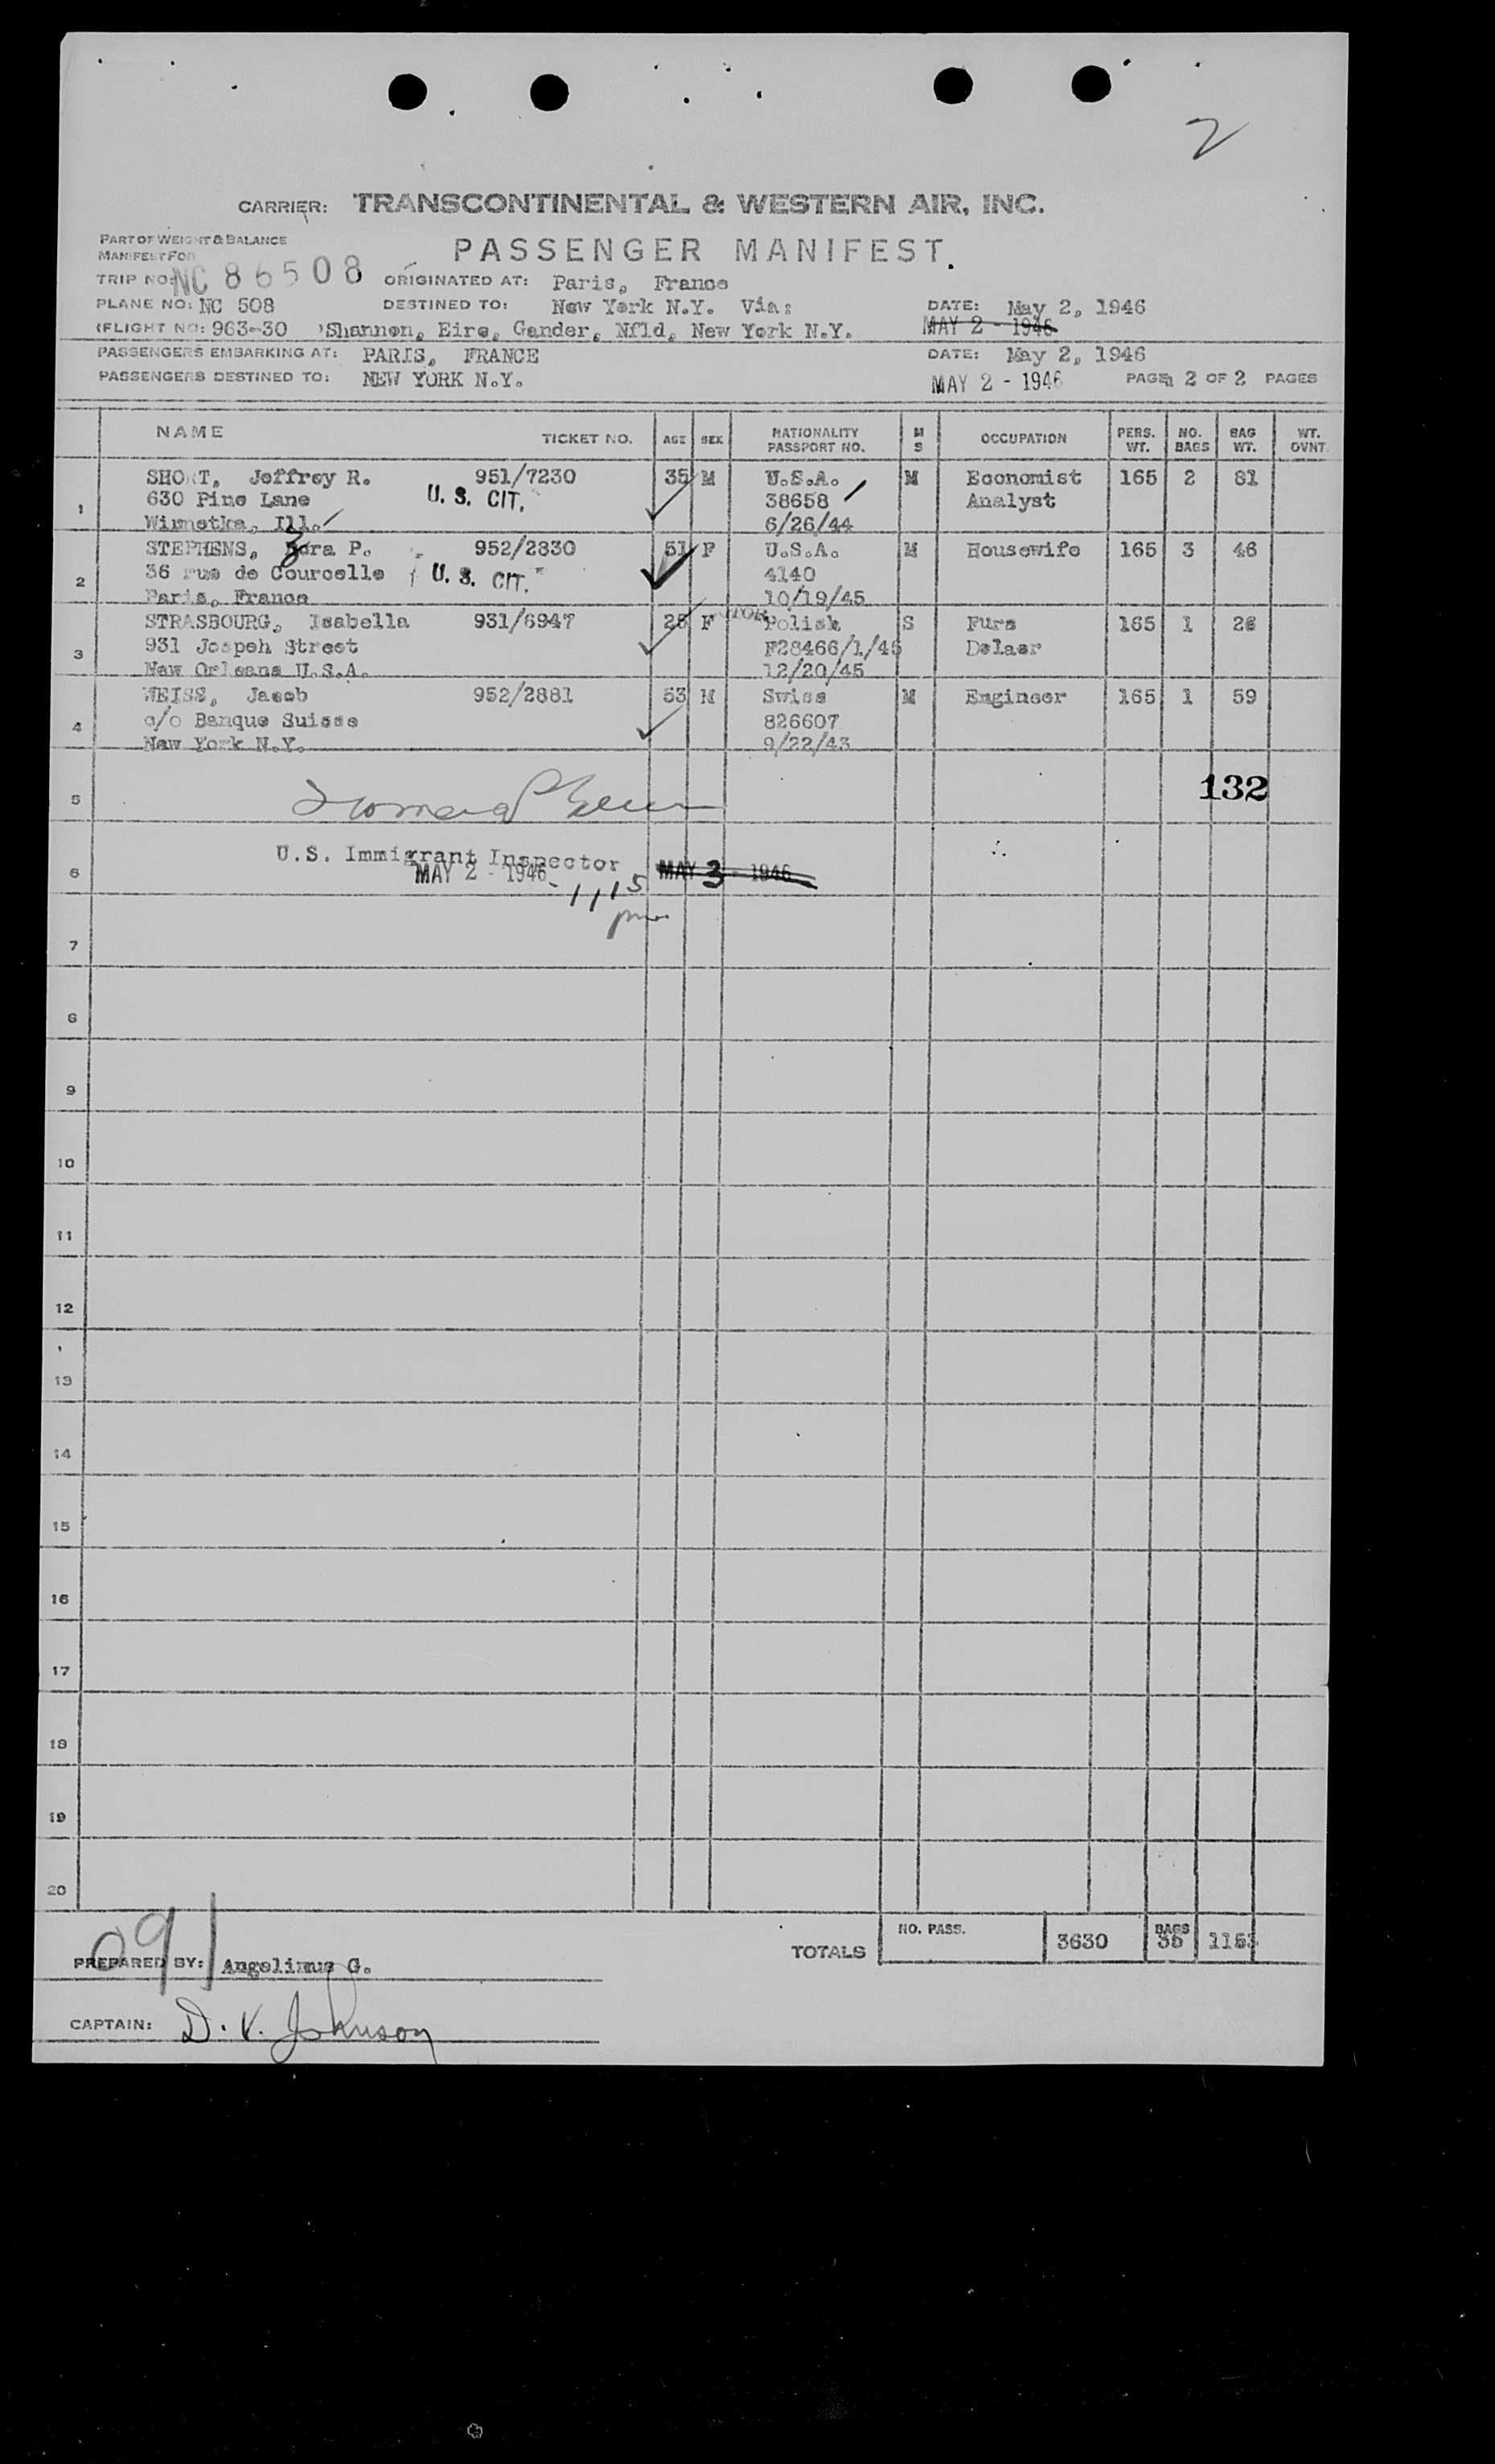 2
CARRIER: TRANSCONTINENTAL & WESTERN AIR, INC.
PART OF WEIGHT & BALANCE
MANIFEST FOR
PASSENGER MANIFEST.
TRIP NO: NC 86508 ORIGINATED AT: Paris, France
PLANE NO: NC 508 DESTINED TO: New York N.Y. Via: DATE: May 2, 1946
(FLIGHT NO: 963-30 Shannon, Eire, Gander, Nfld, New York N.Y. MAY 2 - 1946
PASSENGERS EMBARKING AT: PARIS, FRANCE DATE: May 2, 1946
PASSENGERS DESTINED TO: NEW YORK N.Y. MAY 2 - 1946 PAGE 2 OF 2 PAGES
NAME TICKET NO. AGE SEX NATIONALITY PASSPORT NO. M S OCCUPATION PERS. WT. NO. BAGS BAG WT. WT. OVNT.
SHORT, Jeffrey R. 951/7230 35 M U.S.A. M Economist 165 2 81
1 630 Pine Lane U. S. CIT. 38658 Analyst
Winnetka, Ill. 6/26/44
STEPHENS, P. 952/2830 51 F U.S.A. M Housewife 165 3 46
2 36 rue de Courcelle U. S. CIT. 4140
Paris, France 10/19/45
STRASBOURG, Isabella 931/6947 F Polish S Furs 165 1
3 931 Jospeh Street F28466/1/45 Delaer
New Orleans U.S.A. 12/20/45
WEISS, Jacob 952/2881 53 M Swiss M Engineer 165 1 59
4 c/o Banque Suisse 826607
New York N.Y. 9/22/43
5 132
U.S. Immigrant Inspector
6 MAY 2 - 1946 - 1115 MAY 3 - 1946
pm
7
8
9
10
11
12
13
14
15
16
17
18
19
20
TOTALS NO. PASS. 3630 BAGS 35
091
PREPARED BY: Angelinus G.
CAPTAIN: D. V. Johnson